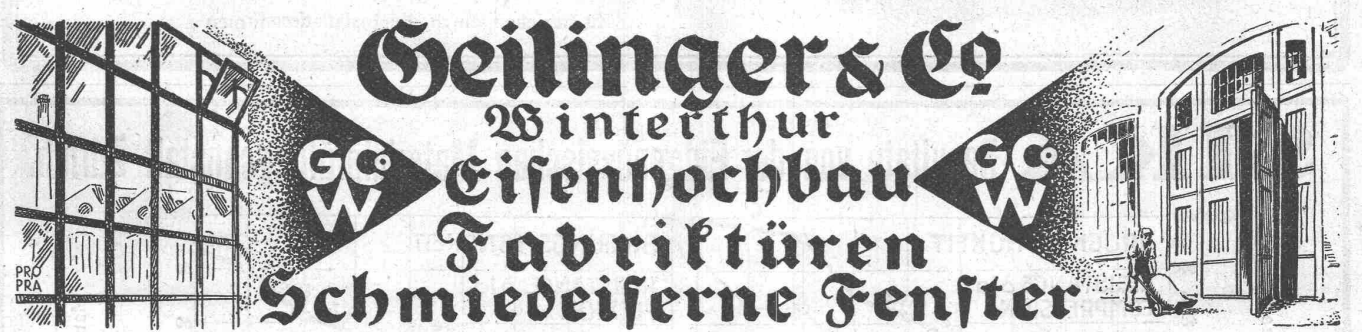 Geilinger & Co.
Winterthur
Eisenhochbau
Fabriktüren
Schmiedeiserne Fenster
GCo
W
GCo
W
PRO
PRA